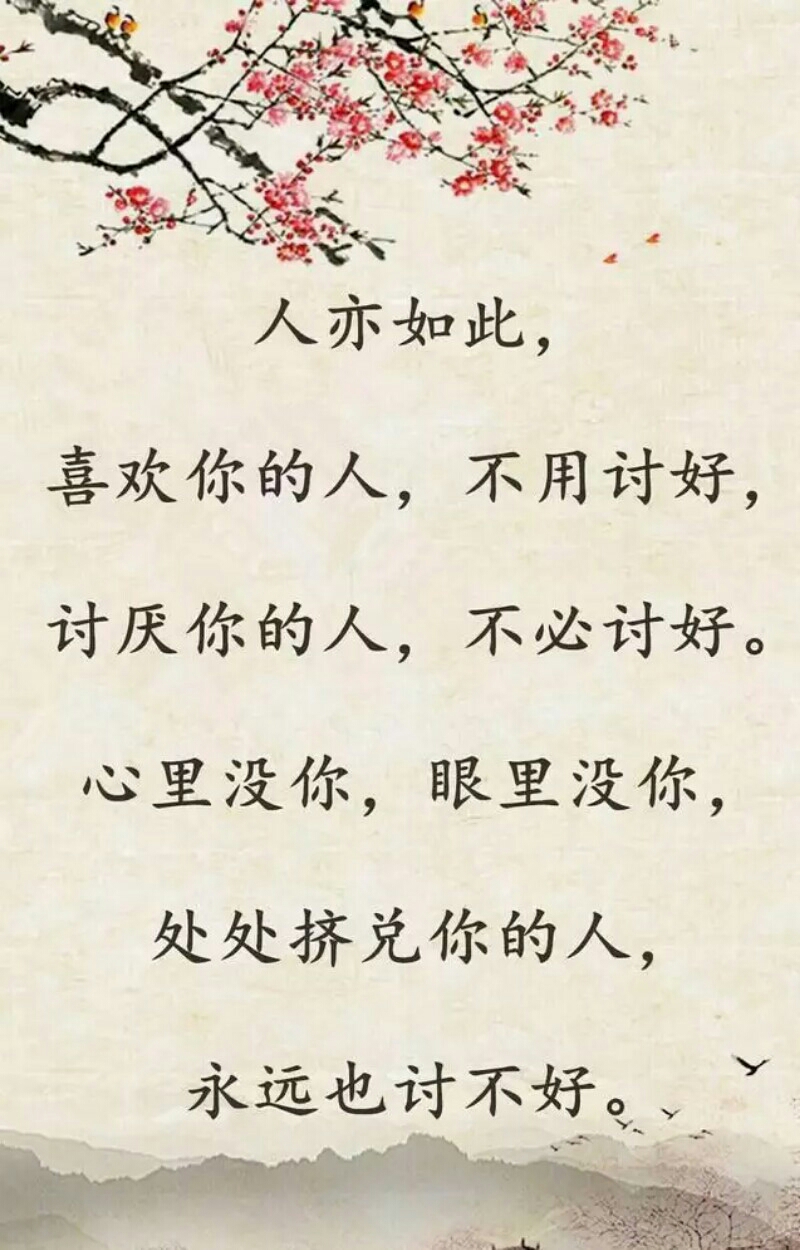 人亦如此，
喜欢你的人，不用讨好，
讨厌你的人，不必讨好。
心里没你，眼里没你，
处处挤兑你的人，
永远也讨不好。